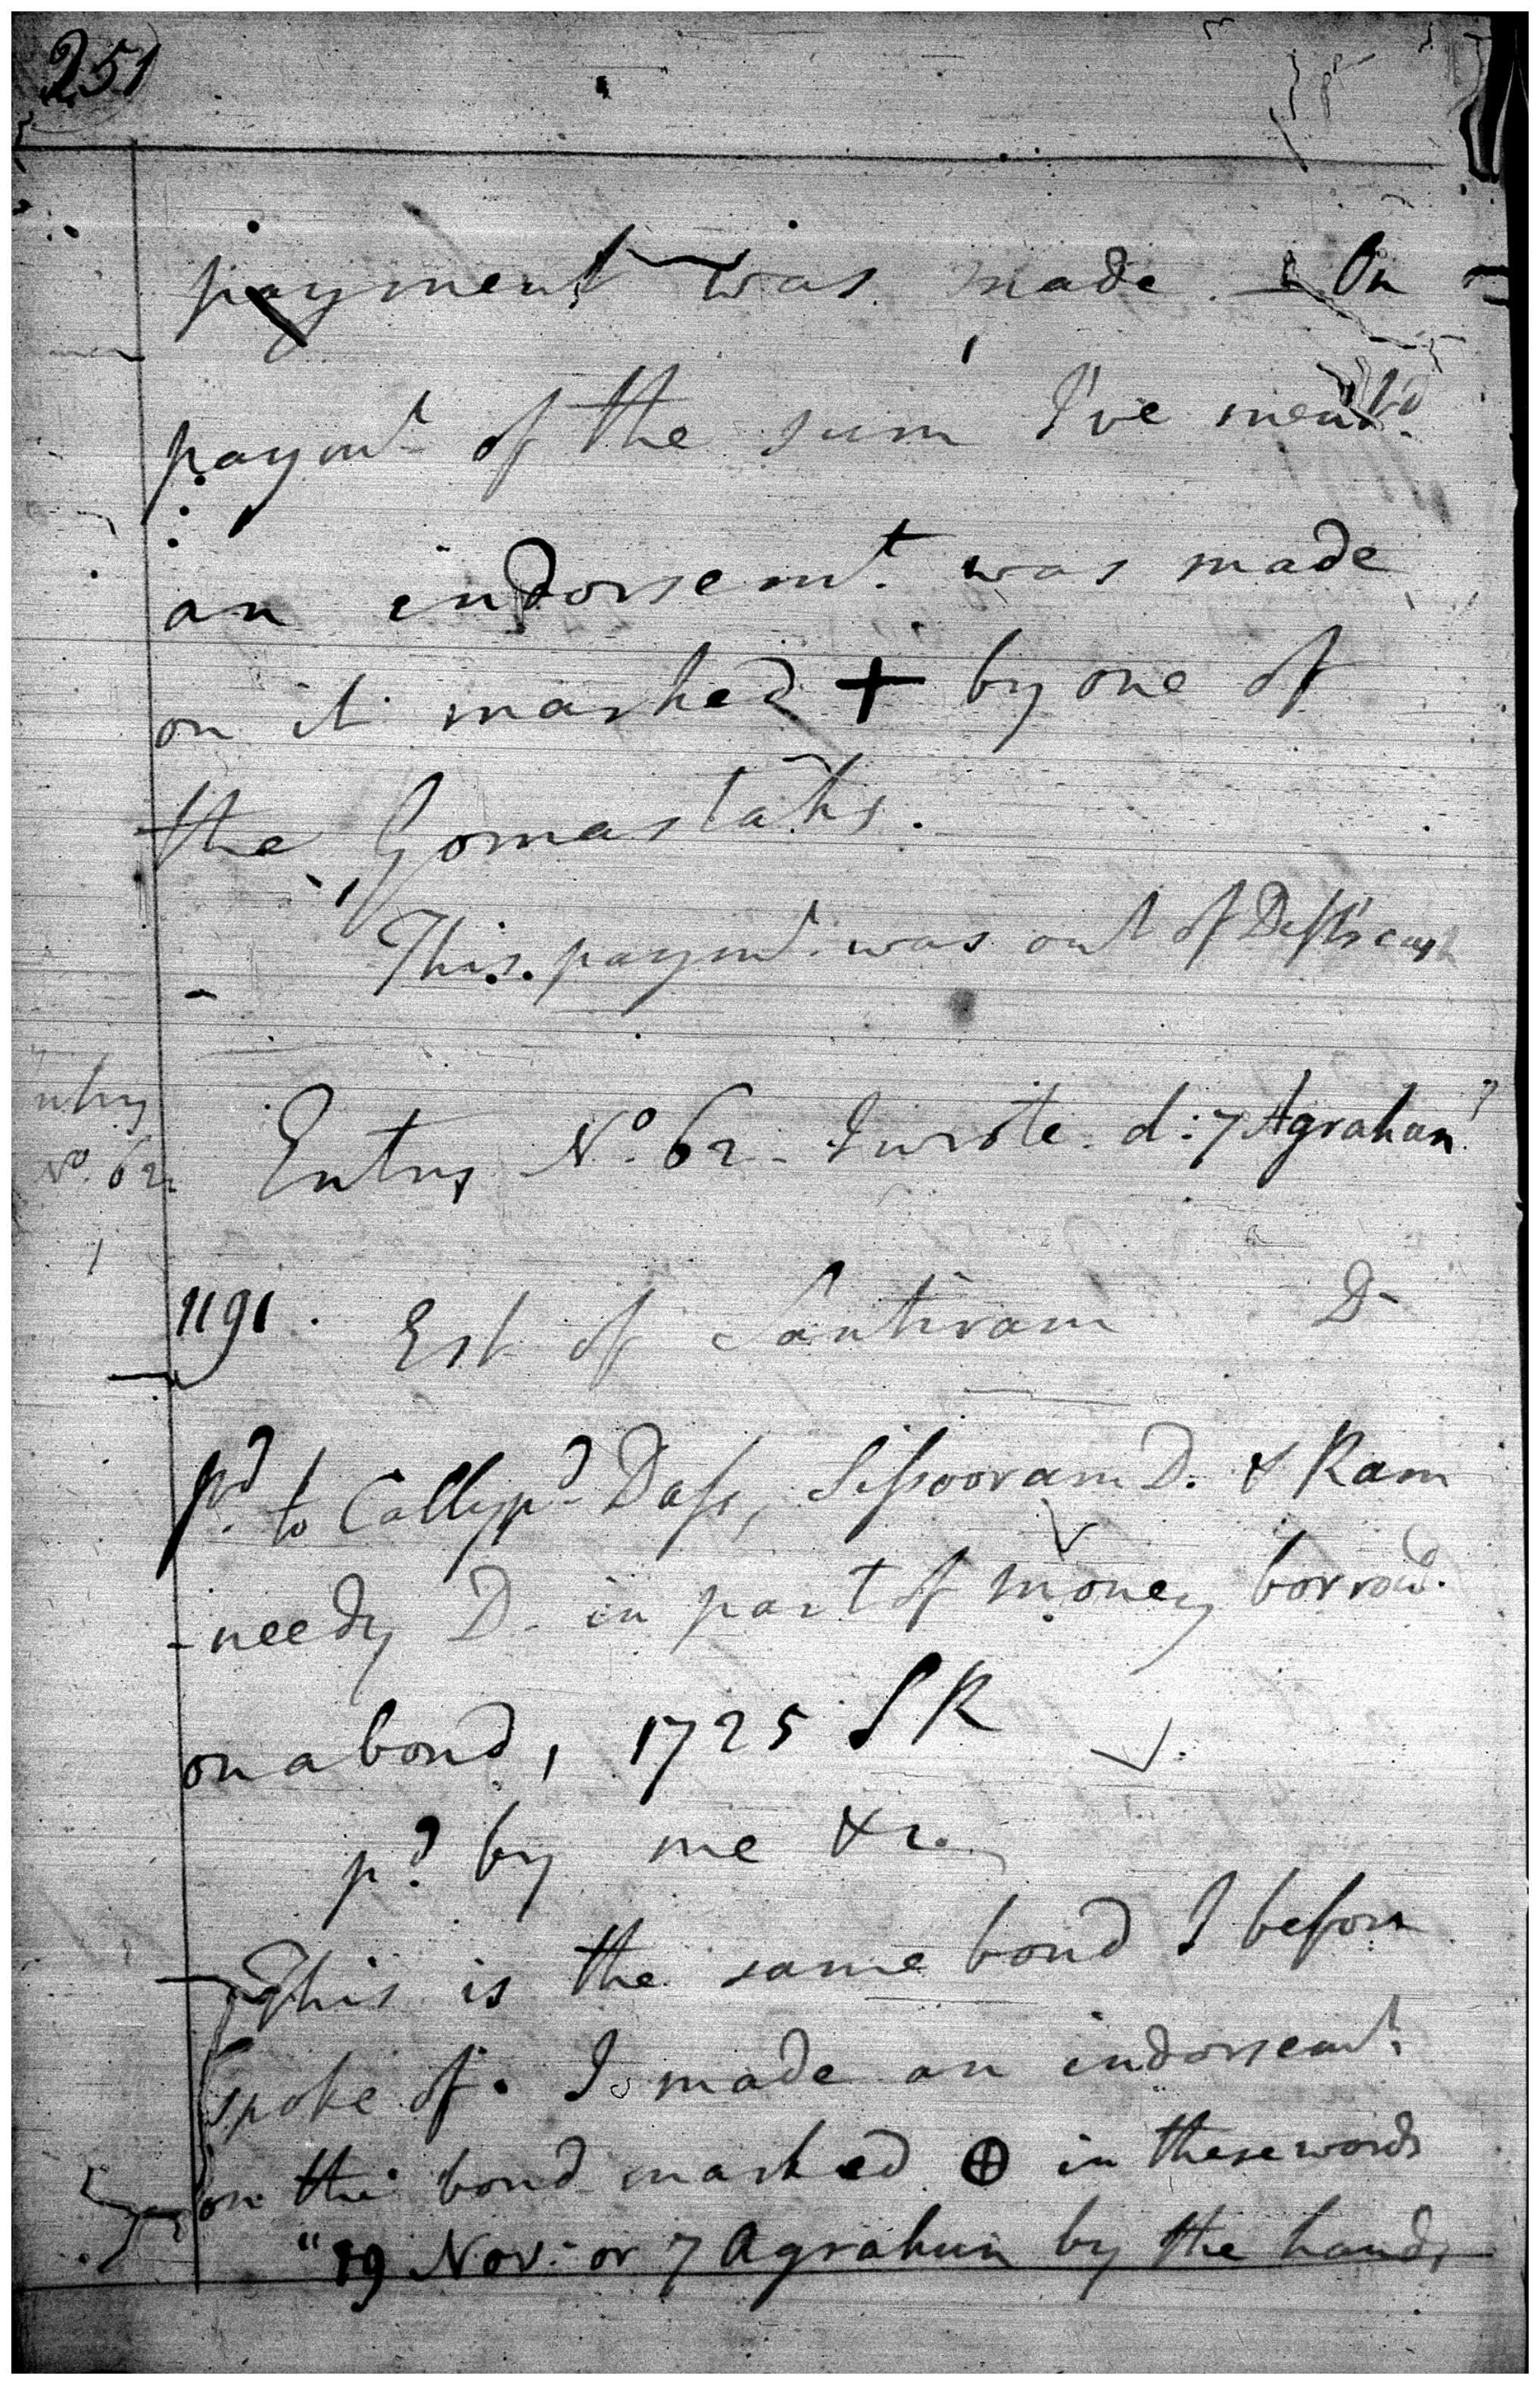 251
payment was made — On
paymt of the sum I've mentd
an indorsemt. was made
on it marked + by one of
the Gomastahs.
This paymt. was out of Deft's cash
Entry
No. 62
Entry No. 62 - I wrote d: 7 Agrahan
1191. Est of Santiram D-
pd. to Callypd Dass, Sissooram D. & Ram
-needy D- in part of money borrowd.
on a bond, 1725 SR
pd. by me &c.
This is the same bond I before
spoke of. I made an indorsemt.
on the bond marked ⊕ in these words
"19 Nov: or 7 Agrahun by the hands